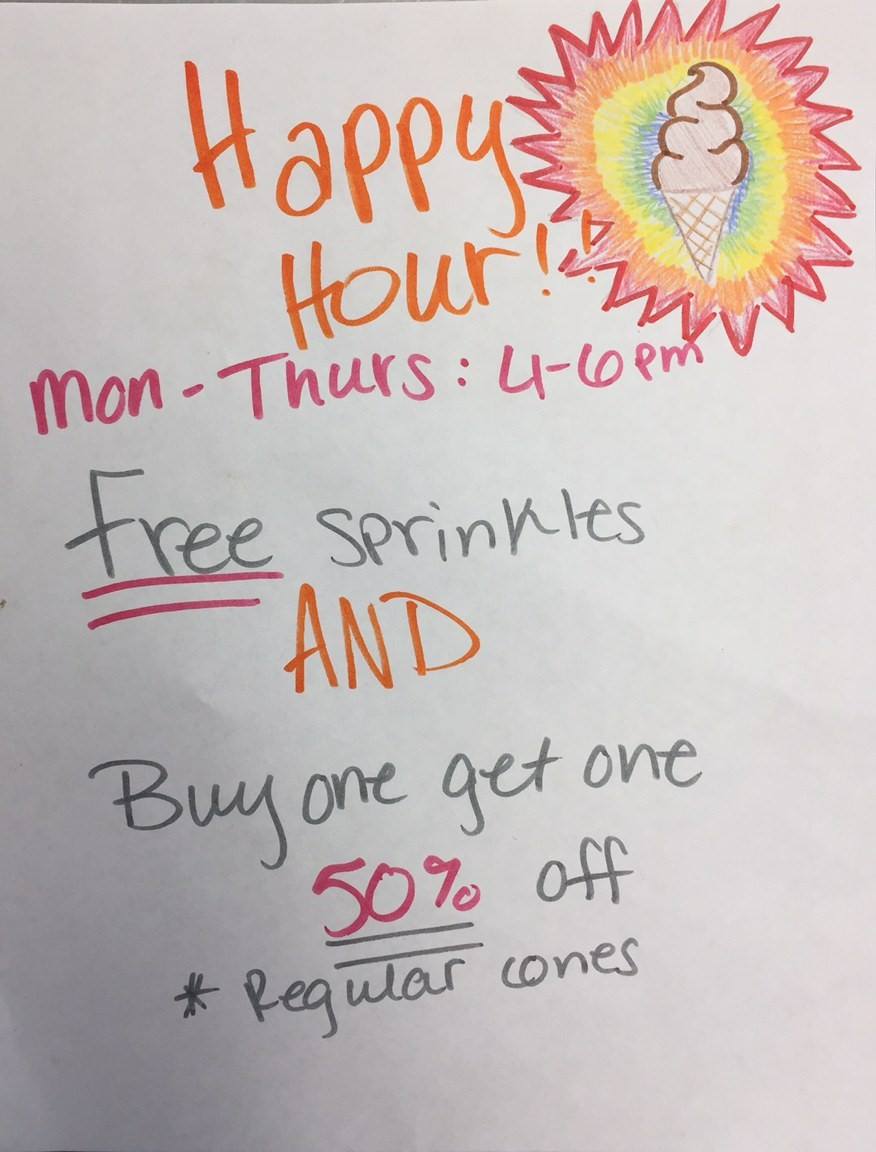 Happy
Hour!!
Mon-Thurs: 4-6pm
Free sprinkles
AND
Buy one get one
50% off
* Regular cones